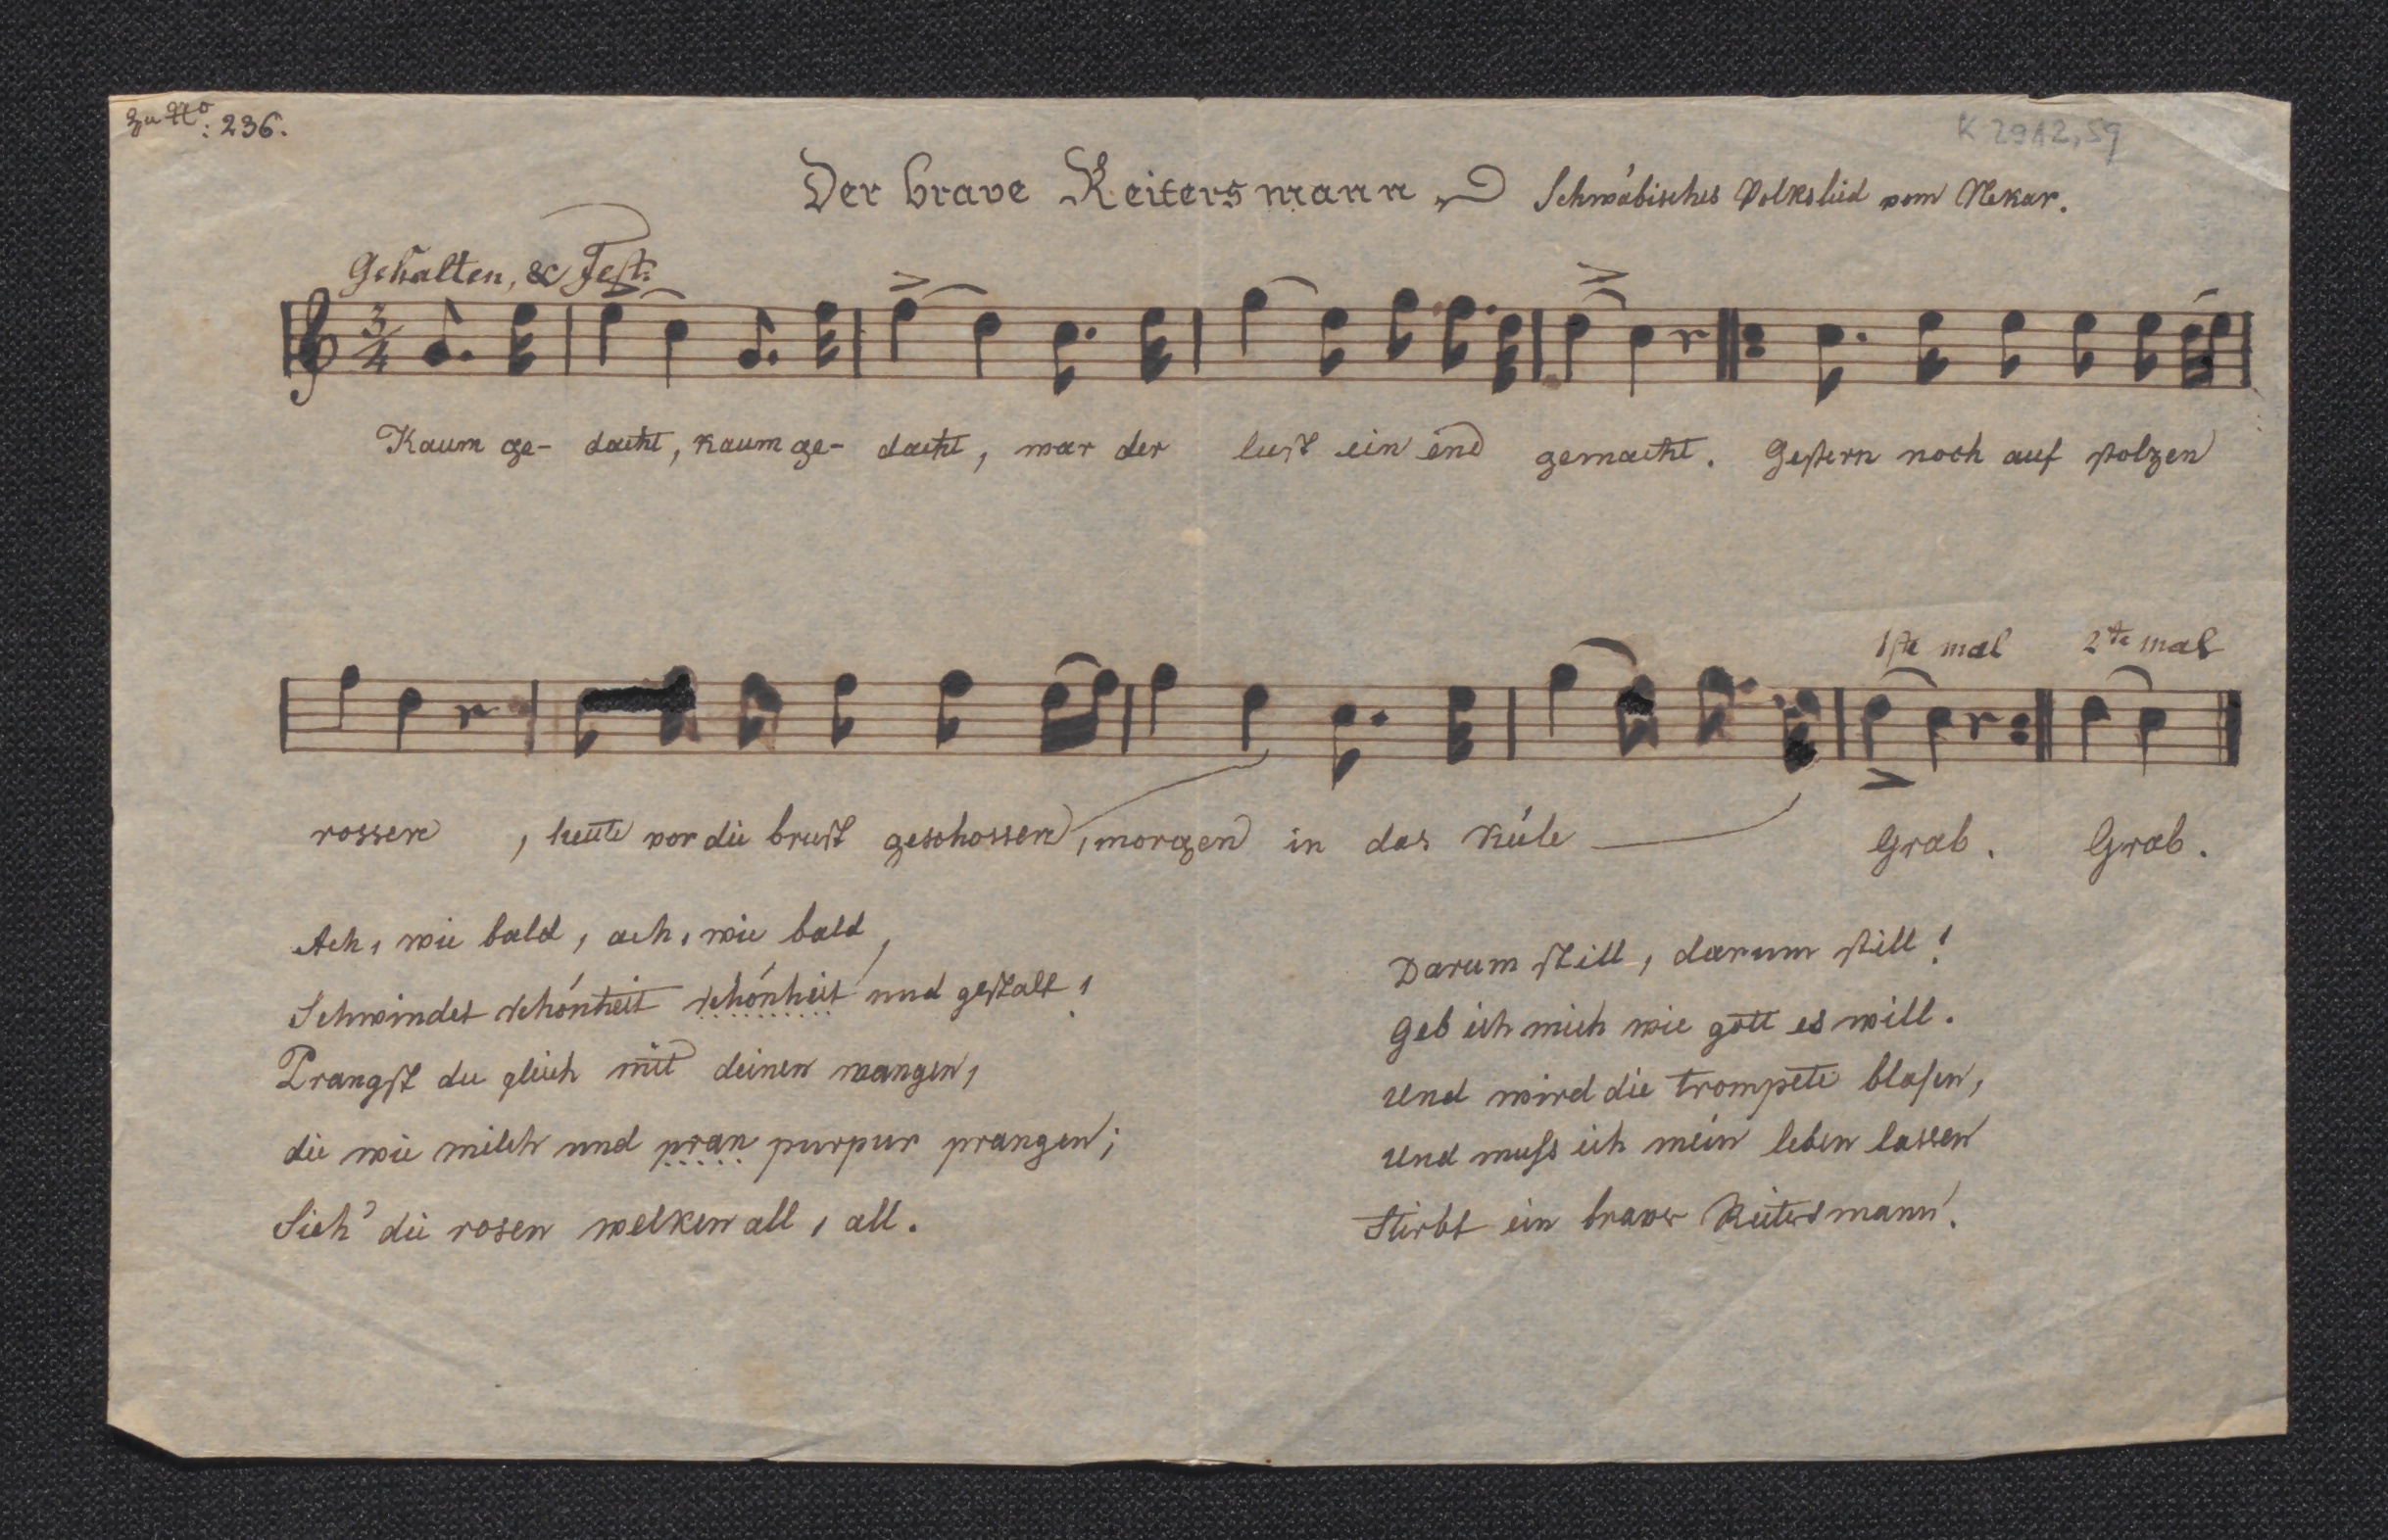 Zu No: 236.
K 2912, 59
Der brave Reitersmann Schwäbisches Volkslied vom Nekar.
Gehalten, & Fest.
3/4
Kaum ge- dacht, kaum ge- dacht, war der lust ein end gemacht. Gestern noch auf stolzen
1ste mal 2te mal
rossen , heute vor die brust geschossen, morgen in das küle Grab. Grab.
Ach, wie bald, ach, wie bald,
Schwindet schönheit schönheit und gestalt,
Prangst du gleich mit deinen wangen,
die wie milch und pran purpur prangen;
Sieh' die rosen welken all, all.
Darum still, darum still!
Geb ich mich wie gott es will.
Und wird die trompete blasen,
Und muss ich mein leben lassen
Stirbt ein braver Reitersmann.